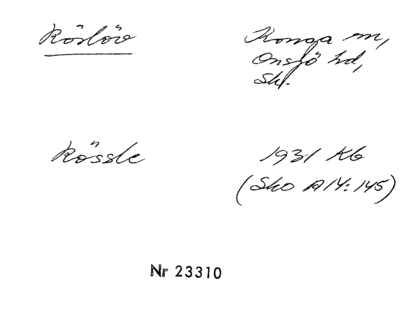 Körlöv
Konga sn,
Onsjö hd,
Sk.
Kössle
1931 Kb
(Sko A14:145)
Nr 23310